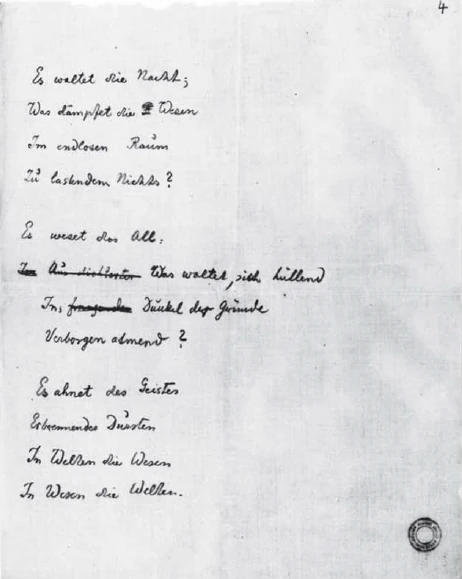 4
Es waltet die Nacht;
Was dämpfet die Wesen
Im endlosen Raum
Zu lastendem Nichts?
Es weset das All:
Was waltet, sich hüllend
Dunkel der Gründe
Verborgen atmend?
Es ahnet des Geistes
Erbrennendes Dürsten
In Welten die Wesen
In Wesen die Welten.